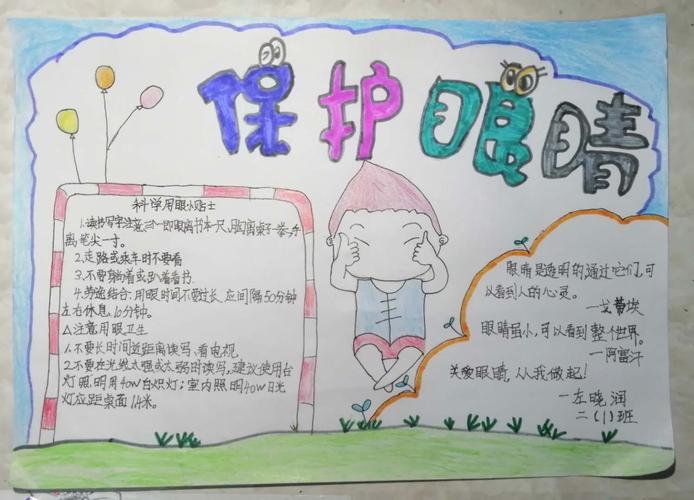 保护眼睛
科学用眼小贴士
1.读书写字注意三个一即眼离书本一尺,胸离桌子一拳,手
离笔尖一寸。
2.走路或乘车时不要看
3.不要躺着或趴着看书
4.劳逸结合:用眼时间不要过长,应间隔50分钟
左右休息10分钟。
△注意用眼卫生
1.不要长时间近距离读写、看电视。
2.不要在光线太强或太弱时读写,建议使用台
灯照明用40W白炽灯;室内照明40W日光
灯应距桌面1.4米。
眼睛是透明的通过它们,可
以看到人的心灵。
一戈蒂埃
眼睛虽小,可以看到整个世界。
一阿富汗
关爱眼睛,从我做起!
一左晓润
二(1)班